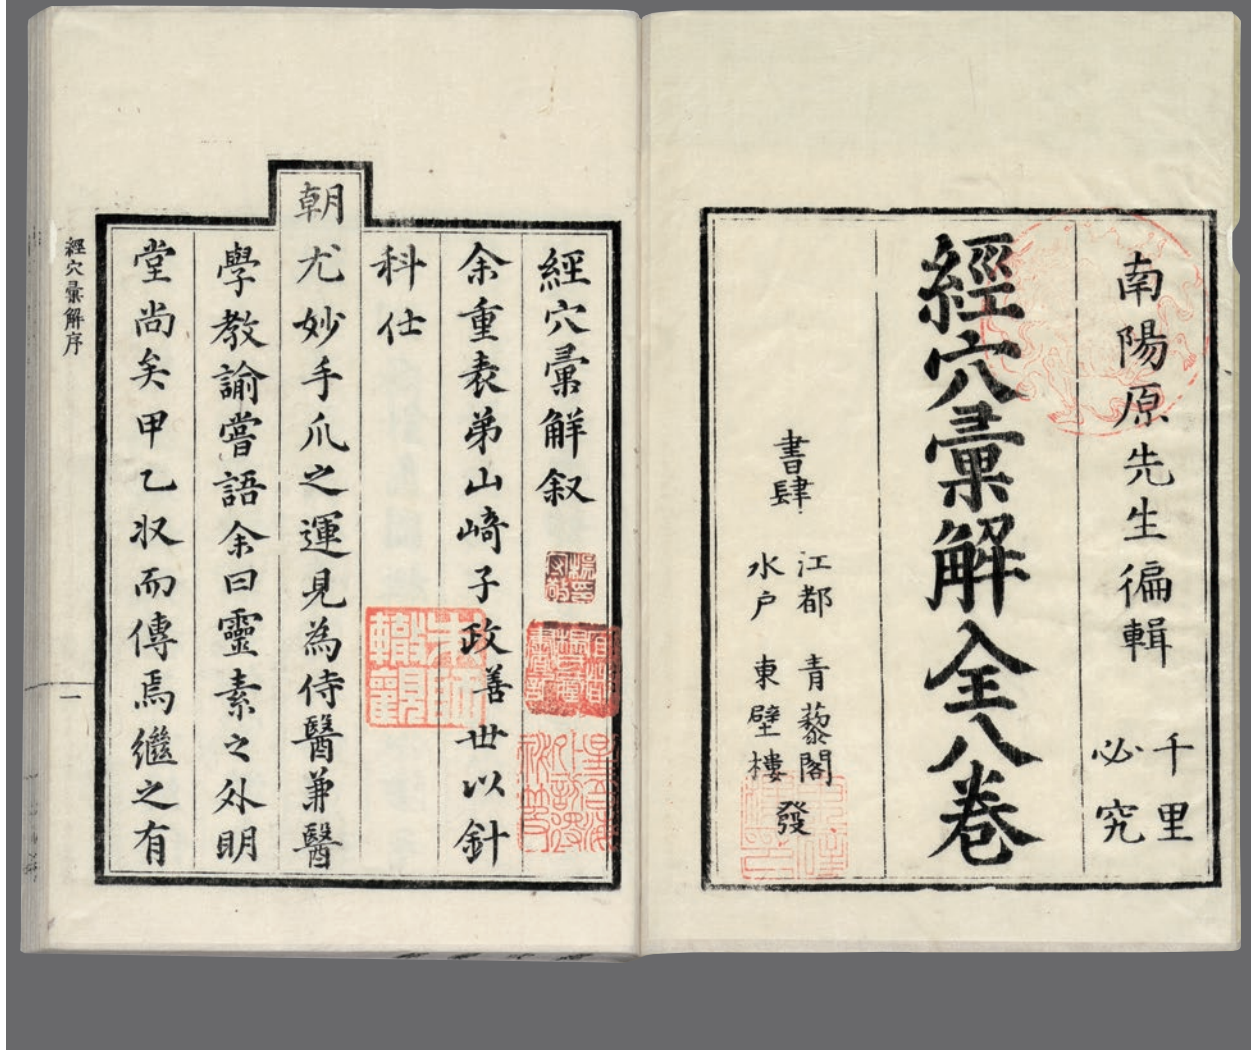 南陽原先生徧輯
千里
必究
經穴彙解全八卷
書肆
江都 青藜閣
水戶 東壁樓
發
經穴彙解叙
余重表弟山崎子政善世以針
科仕
朝尤妙手爪之運見為侍醫兼醫
學教諭嘗語余曰靈素之外明
堂尚矣甲乙収而傳焉繼之有
經穴彙解序
一